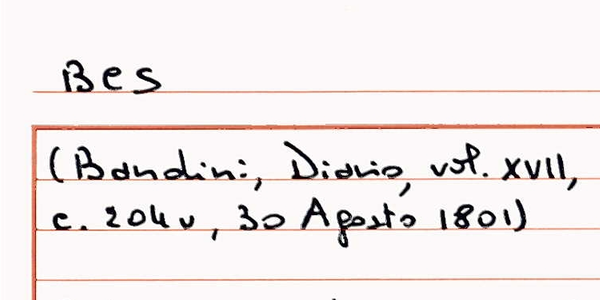 Bes
(Bandini, Diario, vol. XVII,
c. 204v, 30 Agosto 1801)